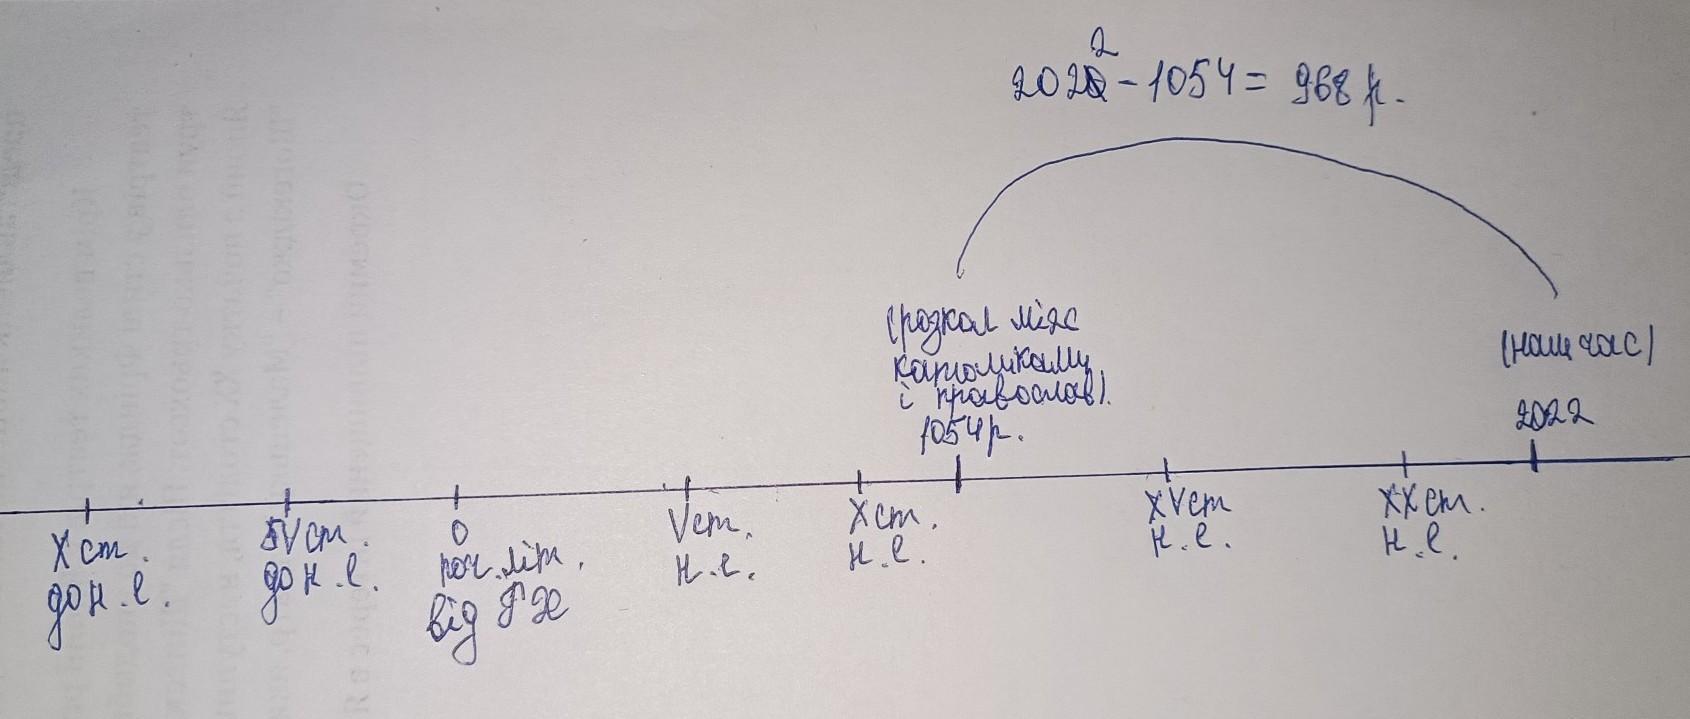 2022 - 1054 = 968 р.
(розкол між
католиками
і православ).
1054 р.
(наш час)
2022
X ст.
до н.е.
V ст.
до н.е.
0
поч. літ.
від РХ
V ст.
н.е.
X ст.
н.е.
XV ст
н.е.
XX ст.
н.е.